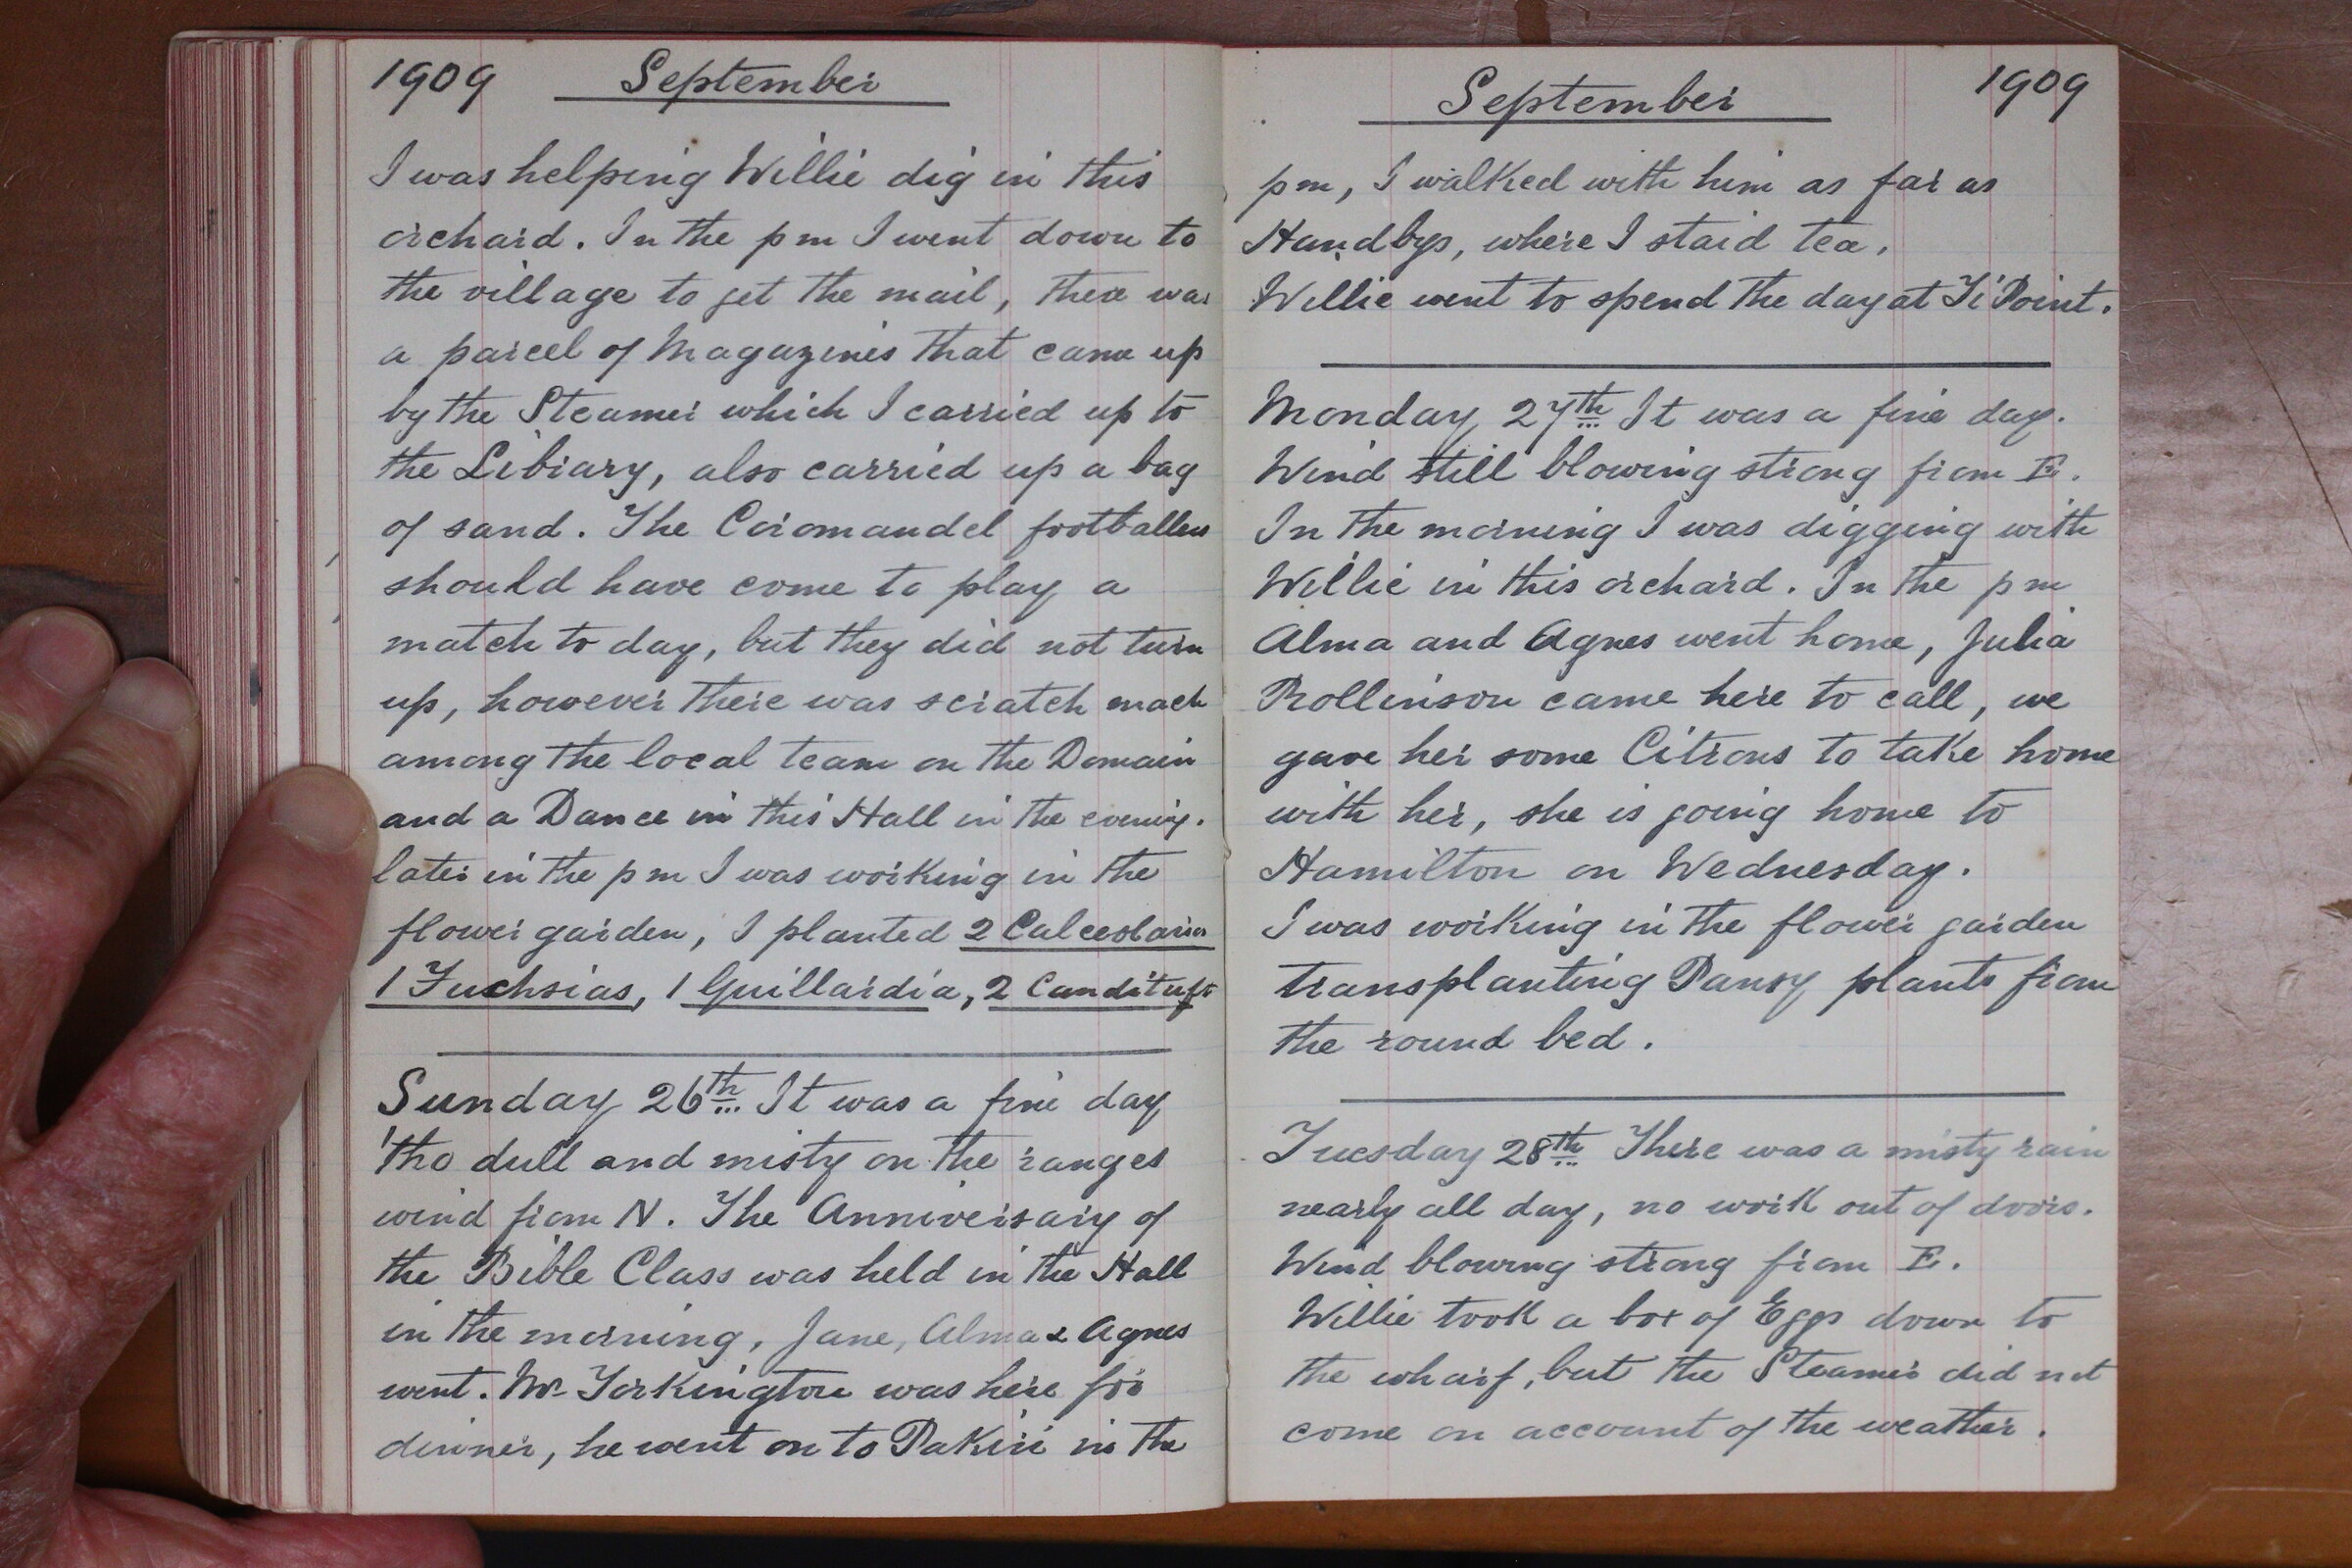 1909 September
I was helping Willie dig in this
orchard. In the pm I went down to
the village to get the mail, there was
a parcel of Magazines that came up
by the Steamer which I carried up to
the Library, also carried up a bag
of sand. The Coromandel footballers
should have come to play a
match to day, but they did not turn
up, however there was scratch mach
among the local team on the Domain
and a Dance in this Hall in the evening.
later in the pm I was working in the
flower garden, I planted 2 Calceolarias
1 Fuchsias, 1 Guillardia, 2 Candituft
Sunday 26th It was a fine day
'tho dull and misty on the ranges
wind from N. The Anniversary of
the Bible Class was held in the Hall
in the morning, Jane, Alma & Agnes
went. Mr Yorkington was here for
dinner, he went on to Pakiri in the
September 1909
pm, I walked with him as far as
Handbys, where I staid tea.
Willie went to spend the day at Ti Point.
Monday 27th It was a fine day.
Wind still blowing strong from E.
In the morning I was digging with
Willie in this orchard. In the pm
Alma and Agnes went home, Julia
Rollinson came here to call, we
gave her some Citrons to take home
with her, she is going home to
Hamilton on Wednesday.
I was working in the flower garden
transplanting Pansy plants from
the round bed.
Tuesday 28th There was a misty rain
nearly all day, no work out of doors.
Wind blowing strong from E.
Willie took a box of Eggs down to
the wharf, but the Steamer did not
come on account of the weather.